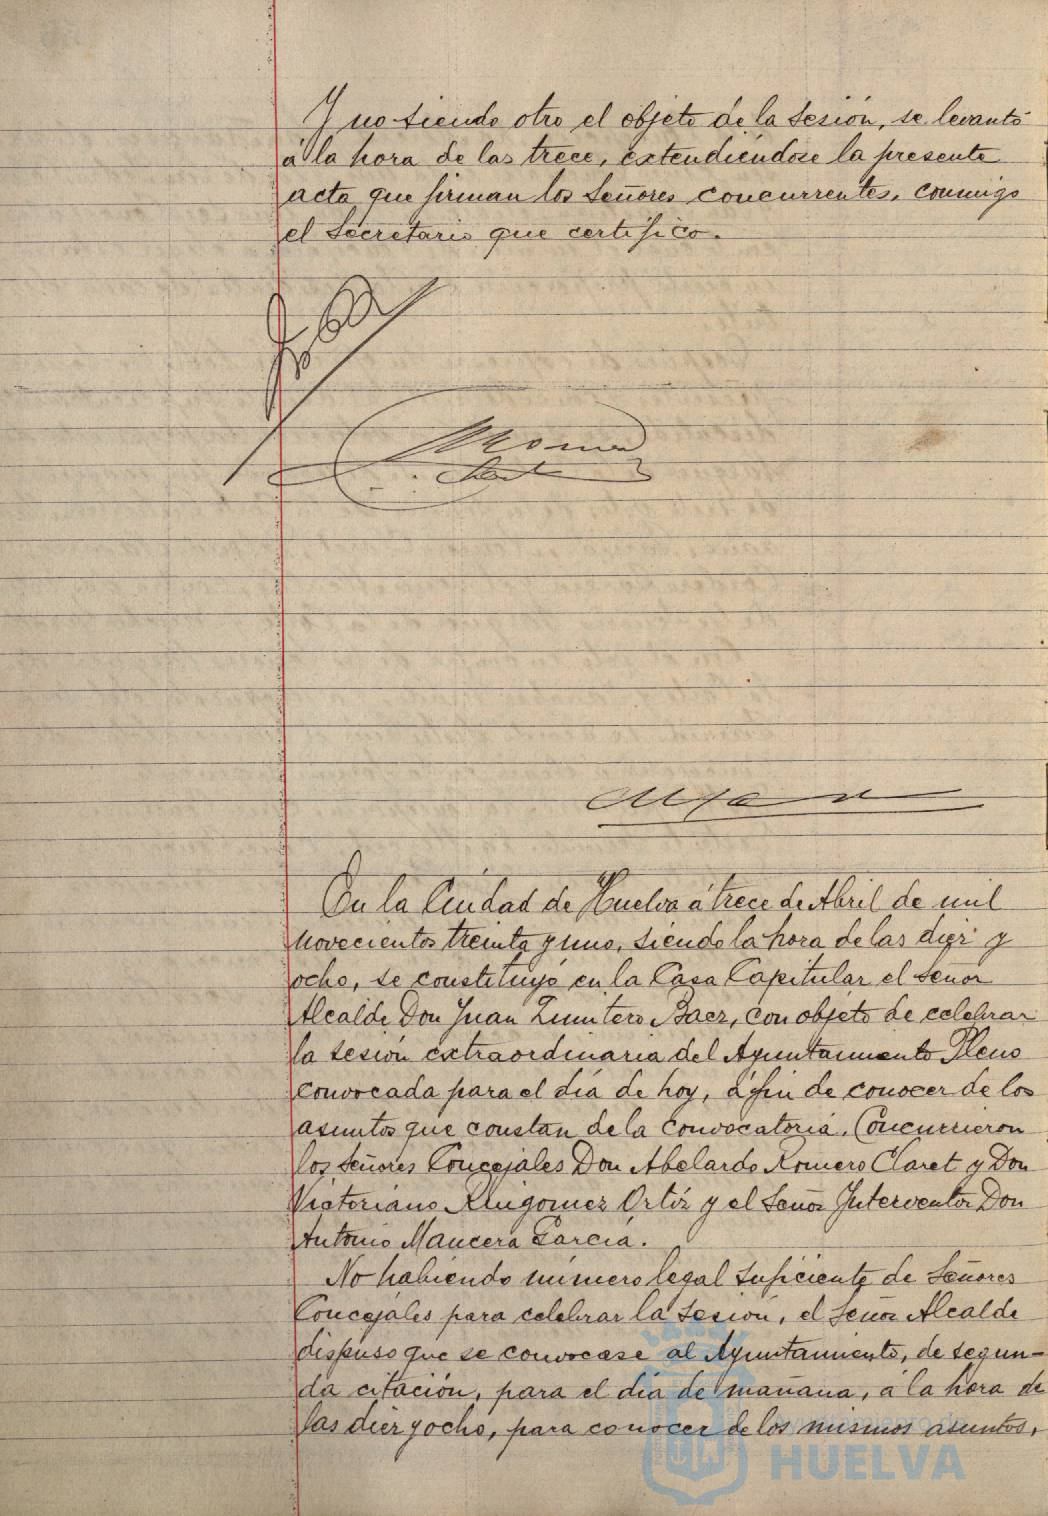 Y no siendo otro el objeto de la sesión, se levantó
á la hora de las trece, extendiéndose la presente
acta que firman los Señores concurrentes, conmigo
el Secretario que certifico.
En la Ciudad de Huelva á trece de Abril de mil
novecientos treinta y uno, siendo la hora de las diez y
ocho, se constituyó en la Casa Capitular el Señor
Alcalde Don Juan Quintero Baez, con objeto de celebrar
la sesión extraordinaria del Ayuntamiento Pleno
convocada para el día de hoy, á fin de conocer de los
asuntos que constan de la convocatoria. Concurrieron
los Señores Concejales Don Abelardo Romero Claret y Don
Victoriano Ruigomez Ortiz y el Señor Interventor Don
Antonio Mancera García.
No habiendo número legal suficiente de Señores
Concejales para celebrar la sesión, el Señor Alcalde
dispuso que se convocase al Ayuntamiento, de segun-
da citación, para el día de mañana, á la hora de
las diez y ocho, para conocer de los mismos asuntos,
Ayuntamiento de
HUELVA